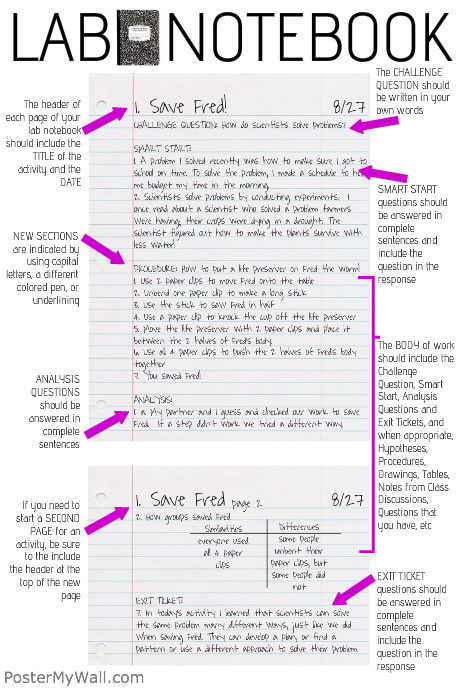 LAB NOTEBOOK
The header of
each page of your
lab notebook
should include the
TITLE of the
activity and the
DATE
The CHALLENGE
QUESTION should
be written in your
own words
1. Save Fred! 8/27
CHALLENGE QUESTION: How do scientists solve problems?
SMART START:
1. A problem I solved recently was how to make sure I got to
school on time. To solve the problem, I made a schedule to help
me budget my time in the morning.
2. Scientists solve problems by conducting experiments. I
once read about a scientist who solved a problem farmers
were having; their crops were dying in a drought. The
scientist figured out how to make the plants survive with
less water!
SMART START
questions should
be answered in
complete
sentences and
include the
question in the
response
NEW SECTIONS
are indicated by
using capital
letters, a different
colored pen, or
underlining
PROCEDURE: How to put a life preserver on Fred the Worm!
1. Use 2 paper clips to move Fred onto the table
2. Unbend one paper clip to make a long stick
3. Use the stick to saw Fred in half
4. Use a paper clip to knock the cup off the life preserver
5. Move the life preserver with 2 paper clips and place it
between the 2 halves of Fred's body
6. Use all 4 paper clips to push the 2 halves of Fred's body
together
7. You saved Fred!
The BODY of work
should include the
Challenge
Question, Smart
Start, Analysis
Questions and
Exit Tickets, and
when appropriate,
Hypotheses,
Procedures,
Drawings, Tables,
Notes from Class
Discussions,
Questions that
you have, etc
ANALYSIS
QUESTIONS
should be
answered in
complete
sentences
ANALYSIS:
1. a. My partner and I guess and checked our work to save
Fred. If a step didn't work we tried a different way.
If you need to
start a SECOND
PAGE for an
activity, be sure
to the include
the header at the
top of the new
page
1. Save Fred page 2 8/27
2. How groups saved Fred
Similarities Differences
everyone used some people
all 4 paper unbent their
clips paper clips, but
some people did
not
EXIT TICKET:
7. In today's activity I learned that scientists can solve
the same problem many different ways, just like we did
when saving Fred. They can develop a plan, or find a
pattern or use a different approach to solve their problem.
EXIT TICKET
questions should
be answered in
complete
sentences and
include the
question in the
response
PosterMyWall.com